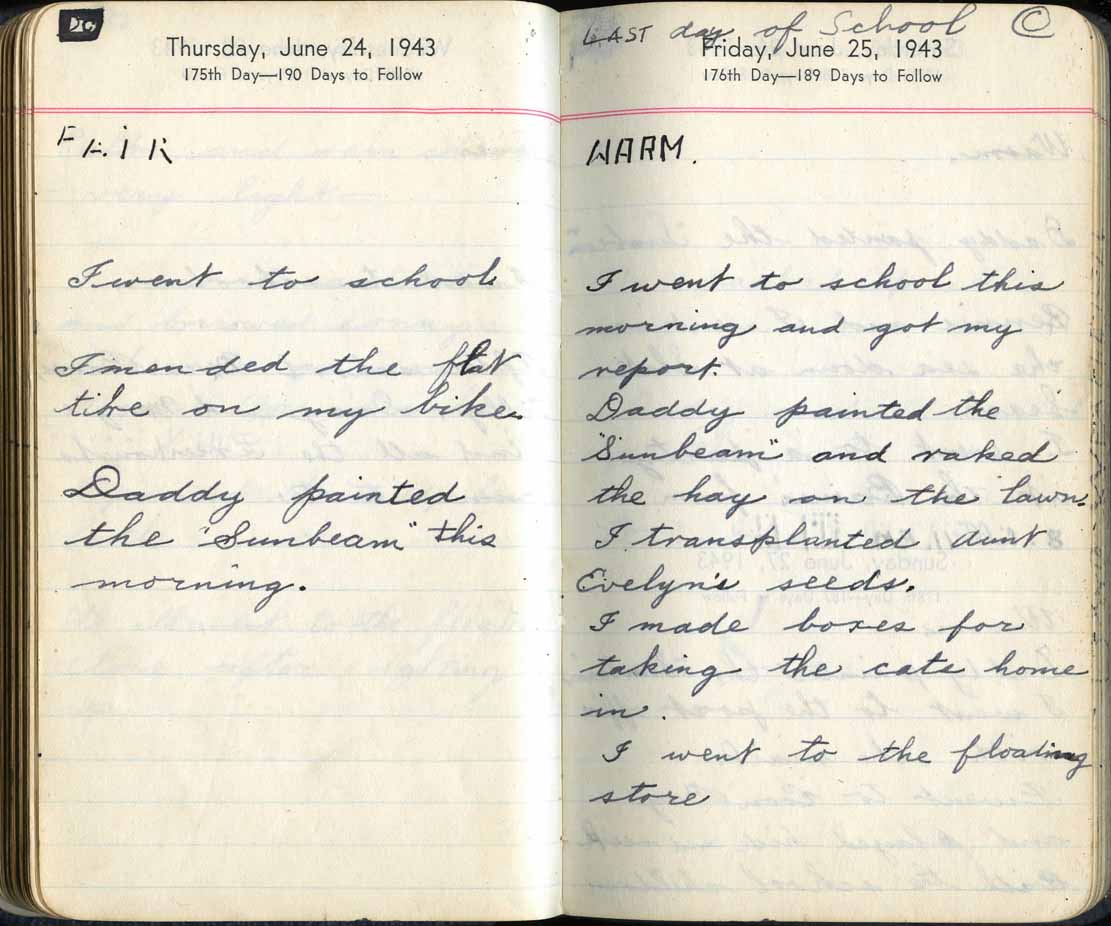 Thursday, June 24, 1943
175th Day—190 Days to Follow
FAIR
I went to school
I mended the flat
tire on my bike.
Daddy painted
the "Sunbeam" this
morning.
LAST day of School ©
Friday, June 25, 1943
176th Day—189 Days to Follow
WARM.
I went to school this
morning and got my
report.
Daddy painted the
"Sunbeam" and raked
the hay on the lawn.
I transplanted aunt
Evelyn's seeds.
I made boxes for
taking the cats home
in.
I went to the floating
store